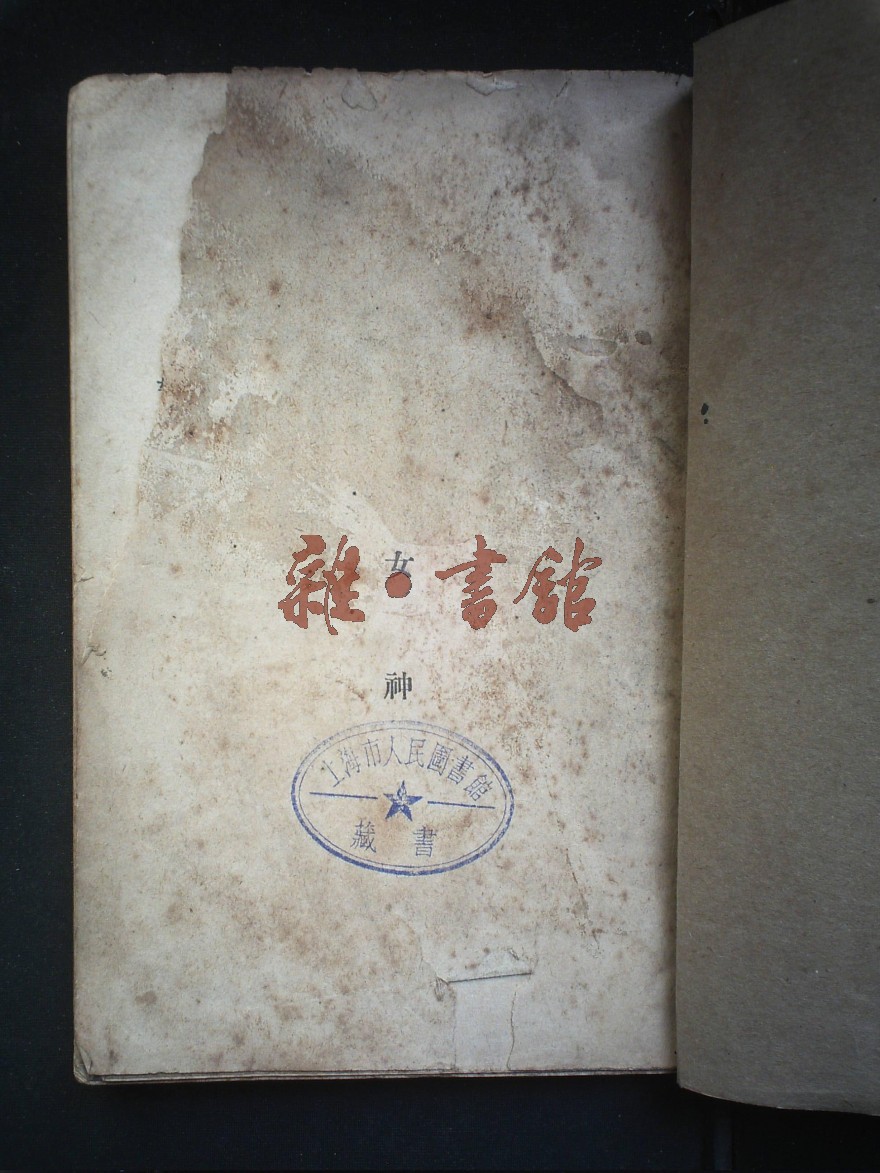 女
雜·書館
神
上海市人民圖書館
藏書